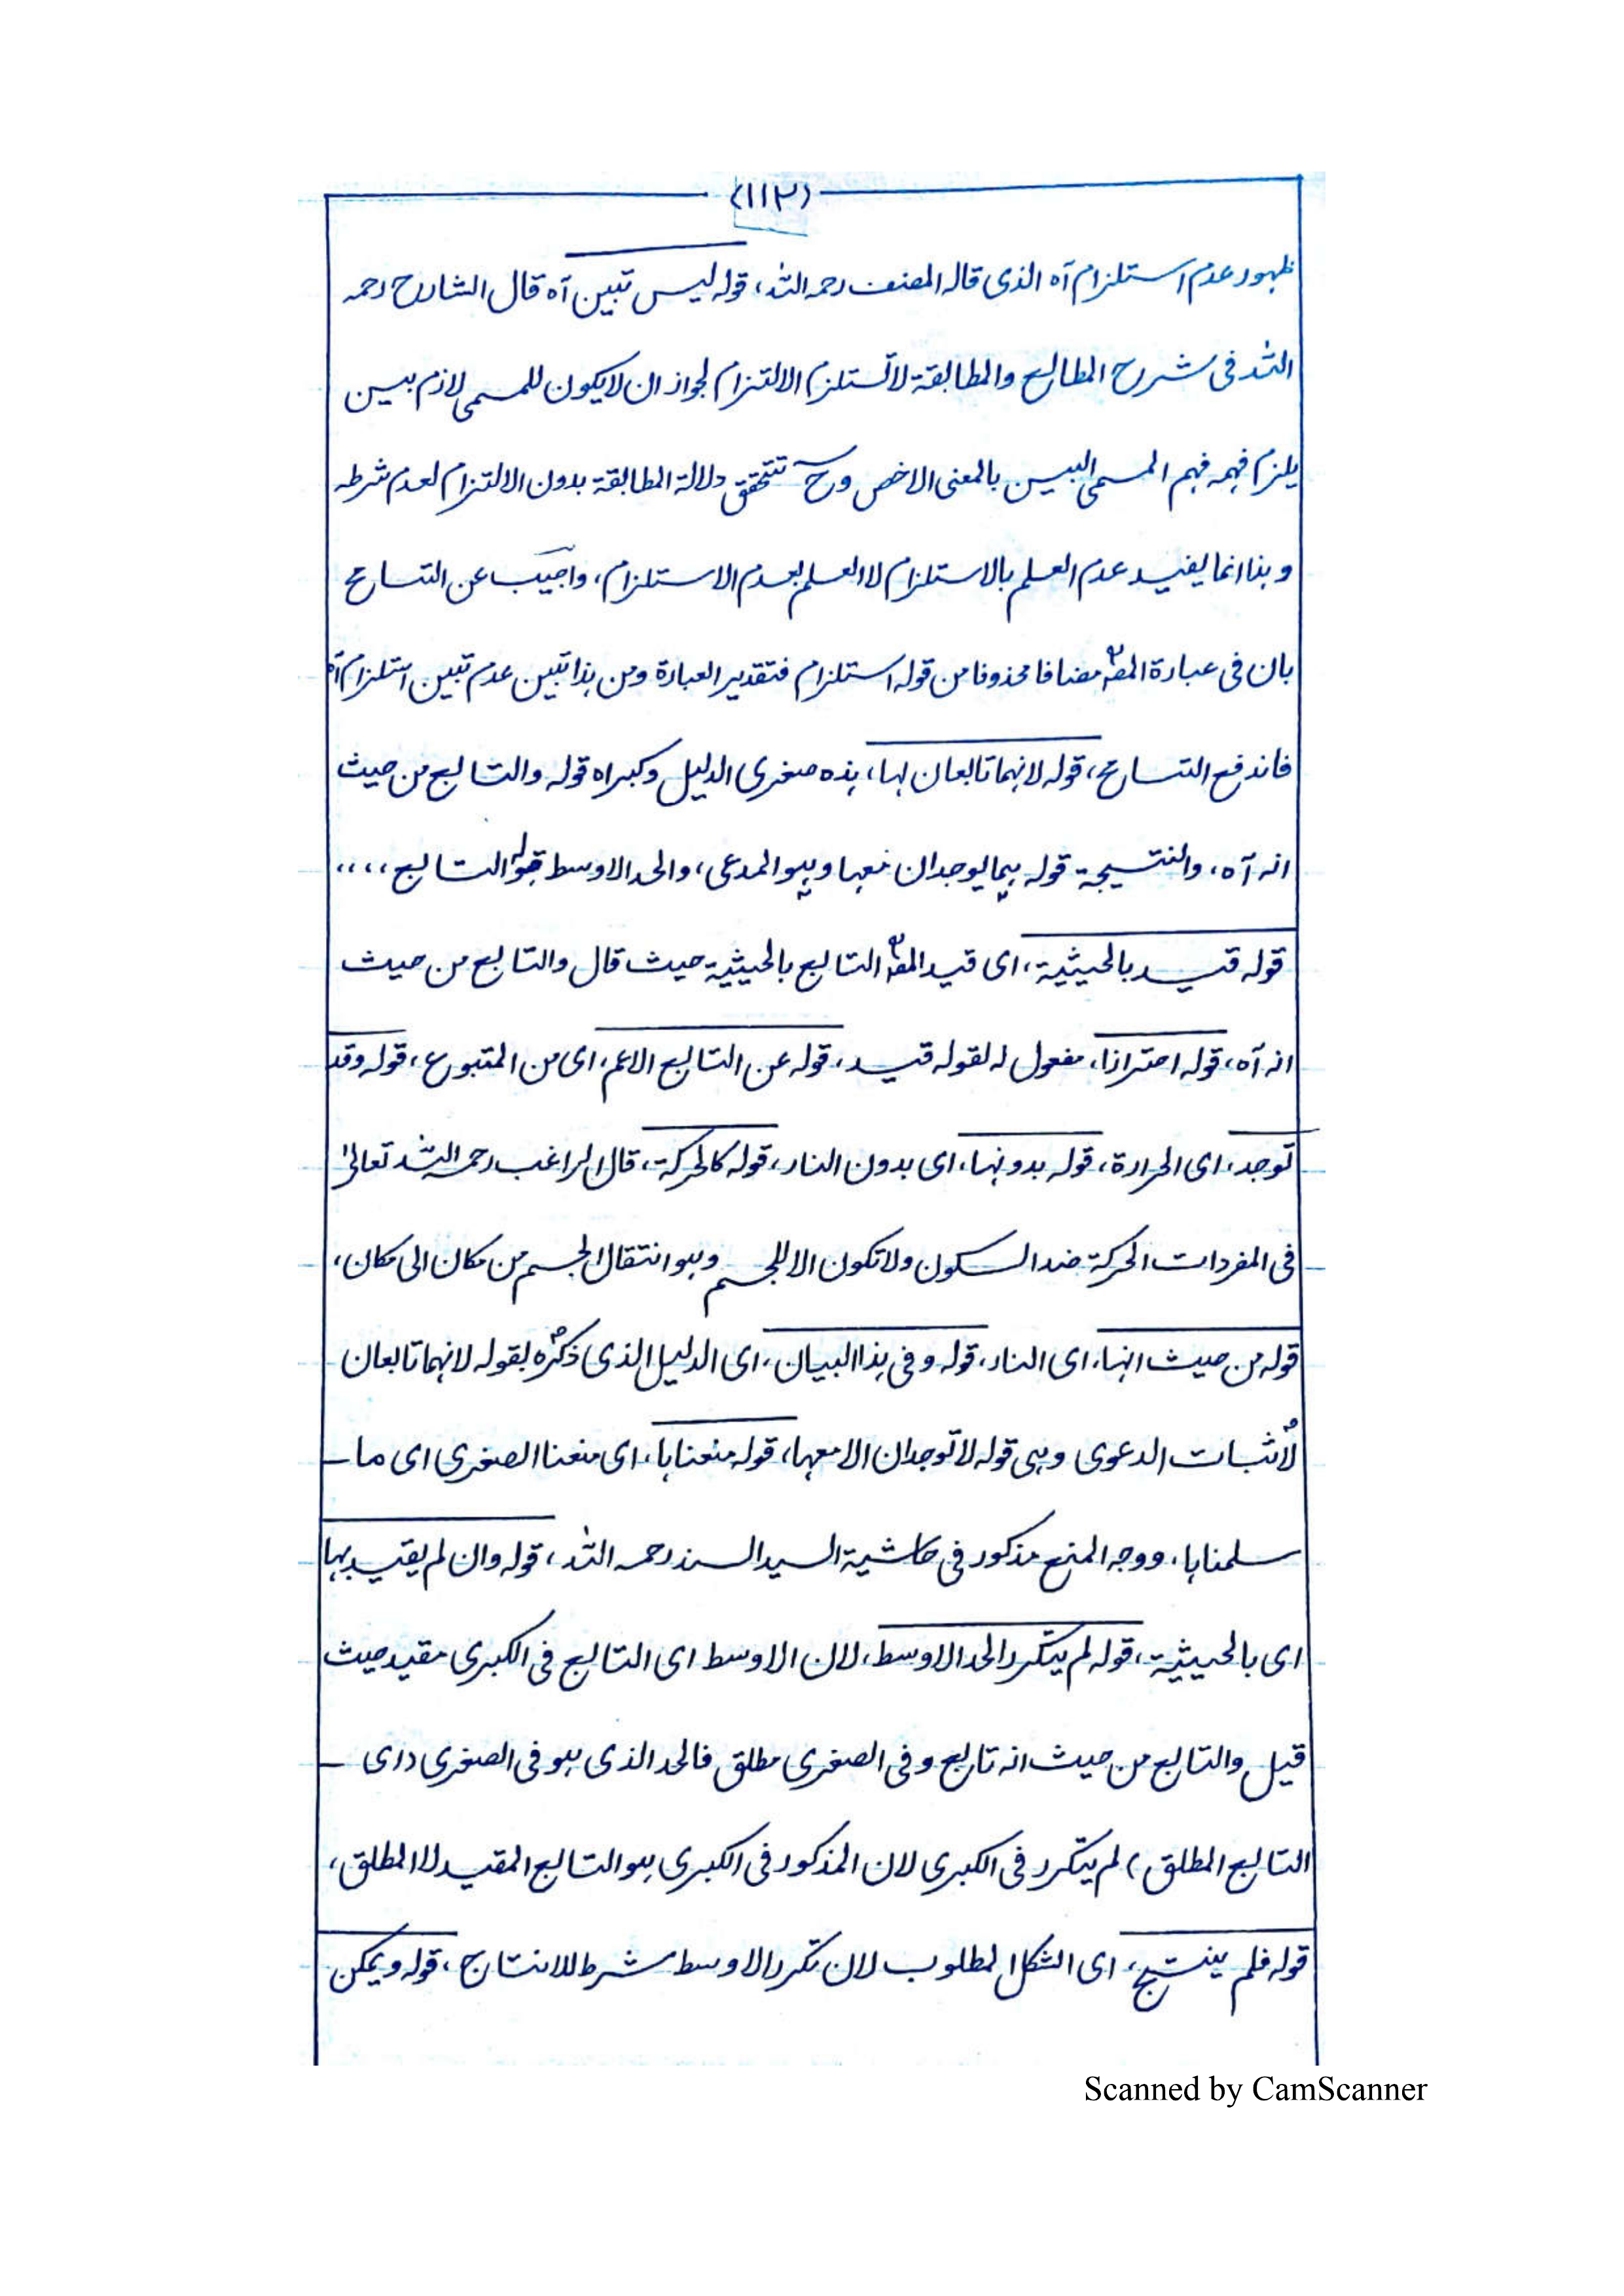 (١١٣)
ظهور عدم استلزام آه الذى قاله المصنف رحمه الله، قوله ليس تبين آه قال الشارح رحمه
الله فى شرح المطالع والمطابقة لا تستلزم الالتزام لجواز ان لا يكون للمسمى لازم بين
يلزم فهمه فهم المسمى البين بالمعنى الاخص وح تتحقق دلالة المطابقة بدون الالتزام لعدم شرطه
وهذا انما يفيد عدم العلم بالاستلزام لا العلم بعدم الاستلزام، واجيب عن التسامح
بان فى عبارة المصؒ مضافا محذوفا من قوله استلزام فتقدير العبارة ومن هذا تبين عدم تبين استلزام آه
فاندفع التسامح، قوله لانهما تابعان لها، هذه صغرى الدليل وكبراه قوله والتابع من حيث
انه آه، والنتيجة قوله هما يوجدان معها وهو المدعى، والحد الاوسط قوله التابع،،،،
قوله قيد بالحيثية، اى قيد المصؒ التابع بالحيثية حيث قال والتابع من حيث
انه آه، قوله احترازا، مفعول له لقوله قيد، قوله عن التابع الاعم، اى من المتبوع، قوله وقد
توجد، اى الحرارة، قوله بدونها، اى بدون النار، قوله كالحركة، قال الراغب رحمه الله تعالىٰ
فى المفردات الحركة ضد السكون ولا تكون الا للجسم وهو انتقال الجسم من مكان الى مكان،
قوله من حيث انها، اى النار، قوله وفى هذا البيان، اى الدليل الذى ذكره بقوله لانهما تابعان
لاثبات الدعوى وهى قوله لا توجدان الا معها، قوله منعناها، اى منعنا الصغرى اى ما ـ
سلمناها، ووجه المنع مذكور فى حاشية السيد السند رحمه الله، قوله وان لم يقيد بها
اى بالحيثية، قوله لم يتكرر الحد الاوسط، لان الاوسط اى التابع فى الكبرى مقيد حيث
قيل والتابع من حيث انه تابع وفى الصغرى مطلق فالحد الذى هو فى الصغرى (اى ـ
التابع المطلق) لم يتكرر فى الكبرى لان المذكور فى الكبرى هو التابع المقيد لا المطلق،
قوله فلم ينتج، اى الشكل المطلوب لان تكرر الاوسط شرط للانتاج، قوله ويمكن
Scanned by CamScanner